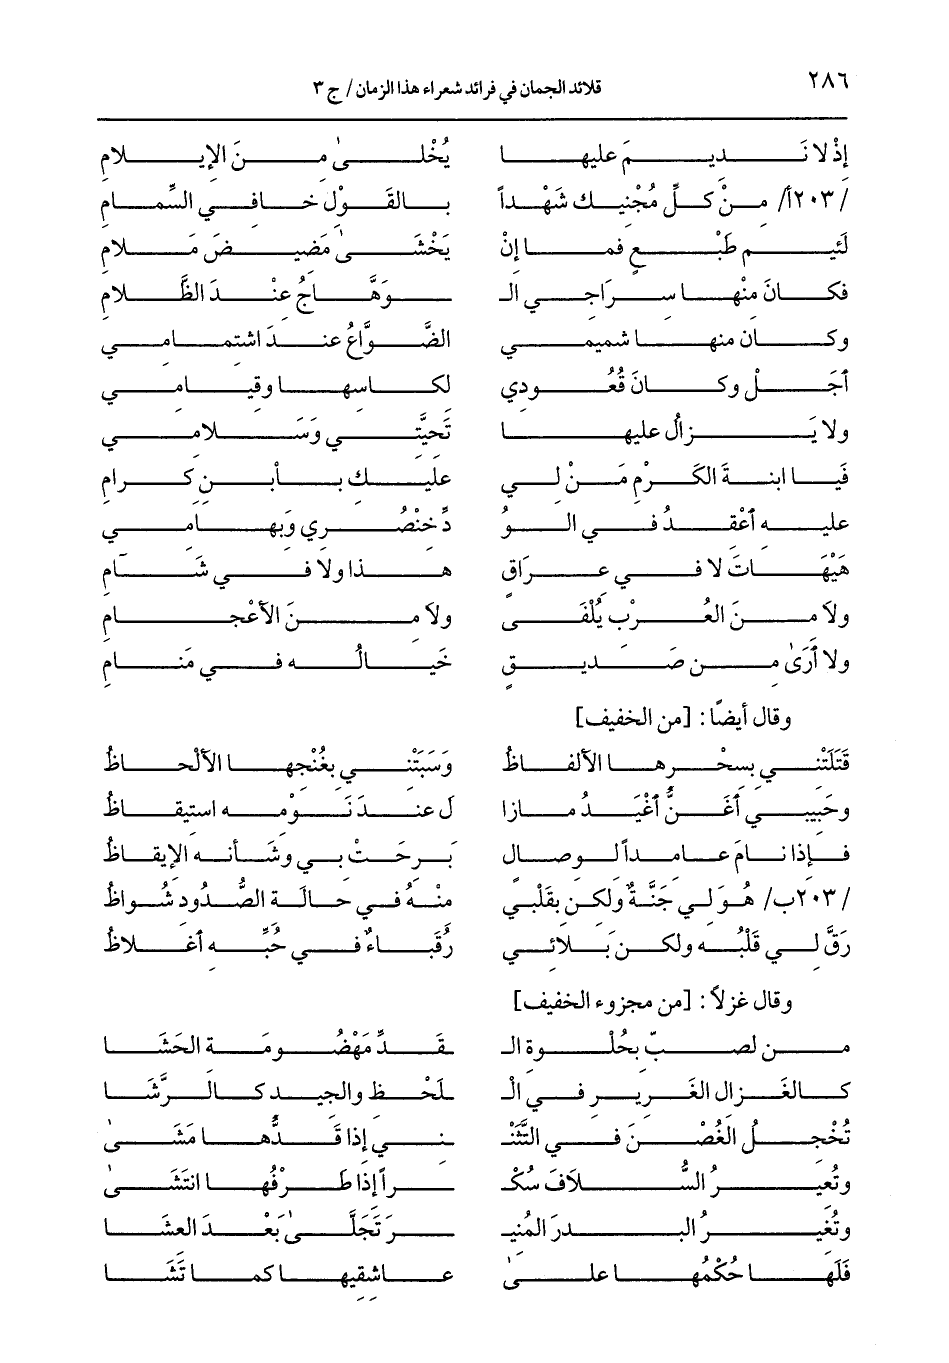 ٢٨٦
قلائد الجمان في فرائد شعراء هذا الزمان/ ج ٣
إذْ لا نَديمَ عليها يُخْلىٰ مِنَ الإيلامِ
/٢٠٣أ/ مِنْ كلِّ مُجْنيك شَهْداً بالقَوْلِ خافي السِّمامِ
لَئيم طَبْعٍ فما إنْ يَخْشىٰ مَضيضَ مَلامِ
فكانَ منْها سِرَاجي الـ ـوَهَّاجُ عِنْدَ الظَّلامِ
وكان منها شميمي الضَّوَّاعُ عندَ اشتمامي
أجَلْ وكانَ قُعُودي لكاسِها وقيامي
ولا يَزالُ عليها تَحيَّتي وَسَلامي
فَيا ابنةَ الكَرْمِ مَنْ لي عليك بأبنِ كرامِ
عليه أعْقِدُ في الوُ دِّ خنْصُري وَبِهامي
هَيْهَاتَ لا في عِرَاقٍ هذا ولا في شَآمِ
ولا مِنَ العُرْبِ يُلْفَى ولا مِنَ الأعْجامِ
ولا أرَىٰ مِن صَديقٍ خَيالُه في مَنامِ
وقال أيضًا: [من الخفيف]
قَتَلَتْني بسحْرِها الألفاظُ وَسَبَتْني بغُنْجِها الألْحاظُ
وحَبيبي أغَنُّ أغْيَدُ مازا لَ عندَ نَوْمِه استيقاظُ
فإذا نامَ عامداً لوِصالٍ بَرحَتْ بي وشأنه الإيقاظُ
/٢٠٣ب/ هُوَ لي جَنَّةٌ ولكن بقَلْبي منْهُ في حالَة الصُّدُودِ شُواظُ
رَقَّ لي قَلْبُه ولكن بَلائي رُقَباءٌ في حُبِّه أغلاظُ
وقال غزلاً: [من مجزوء الخفيف]
من لصبّ بخُلْوة الـ ـقَدِّ مَهْضُومَة الحَشَا
كالغَزال الغَرير في الْـ ـلَحْظ والجيد كالرَّشَا
تُخْجلُ الغُصْنَ في التَّثَنْـ ـني إذا قَدُّها مَشَىٰ
وتُعيرُ السُّلافَ سُكْـ ـراً إذا طَرْفُها انتَشَىٰ
وتُغيرُ البدرَ المُنيـ ـرَ تَجَلَّىٰ بَعْدَ العشَا
فَلَها حُكْمُها علىٰ عاشقيها كما تَشَا